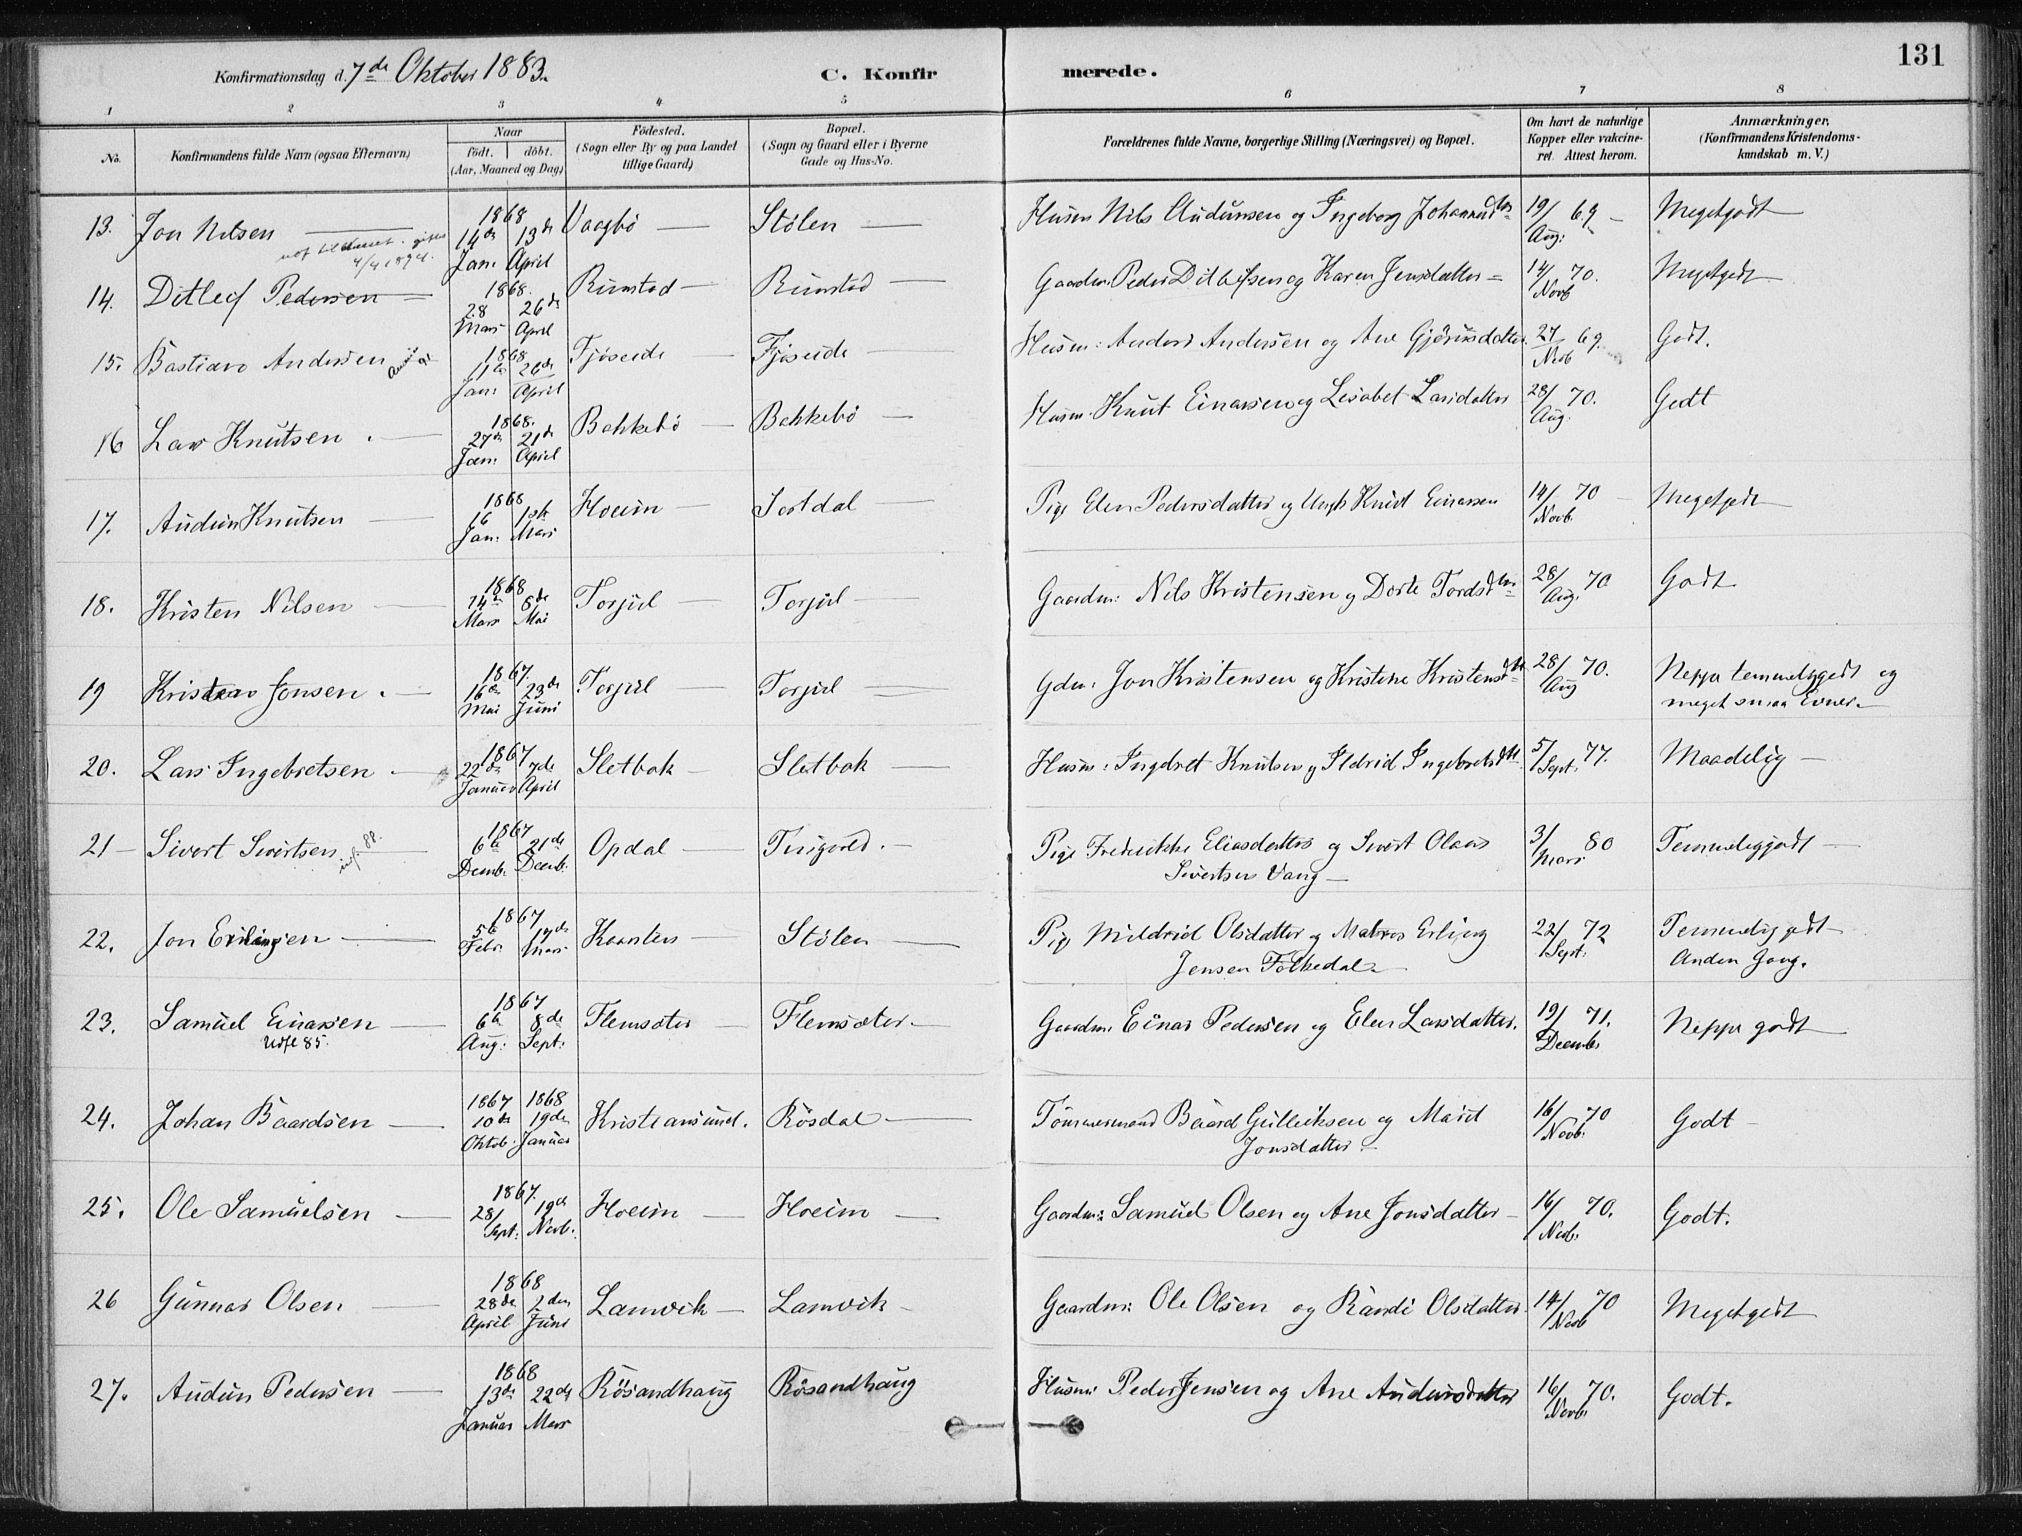 131
Konfirmationsdag d. 7de Oktober 1883. C. Konfirmerede.
1 2 3 4 5 6 7 8
No. Konfirmandens fulde Navn (ogsaa Efternavn) Naar födt. döbt. (Aar, Maaned og Dag) Födested. (Sogn eller By og paa Landet tillige Gaard) Bopæl. (Sogn og Gaard eller i Byerne Gade og Hus-No. Forældrenes fulde Navne, borgerlige Stilling (Næringsvei) og Bopæl. Om havt de naturlige Kopper eller vakcineret. Attest herom. Anmærkninger. (Konfirmandens Kristendomskundskab m. V.)
13. Jon Nilsen 1868 14de Jan. 13de April Vaagbø Stølen Husm Nils Audunsen og Ingeborg Johannesdtr 19/Aug: 69 Megetgodt
4/4 1894.
14. Ditlef Pedersen 1868. 28 Mars 26de April Rimstad Rimstad Gaardm. Peder Ditlefsen og Karen Jensdatter 14/Novb 70. Megetgodt
15. Bastian Andersen 1868 11te Jan: 26de April Fjøseide Fjøseide Husm: Anders Andersen og Ane Gjørusdatter 27/Novb 69. Godt.
16 Lars Knutsen 1868. 27de Jan: 21de April Bakkebø Bakkebø Husm. Knut Einarsen og Lisabet Larsdatter 28/Aug. 70. Godt
17. Audun Knutsen 1868 16 Jan: 1ste Mars Hoeim Sortdal Pige Elen Pedersdatter og Ungk Knut Einarsen 14/Novb. 70 Megetgodt
18. Kristen Nilsen 1868 14de Mars 8de Mai Torjul Torjul Gaardm: Nils Kristensen og Dorte Tordsdtr 28/Aug. 70 Godt
19 Kristen Jonsen 1867. 16de Mai 23de Juni Torjul Torjul Gdm. Jon Kristensen og Kristine Kristensdtr 28/Aug 70. Neppe temmeliggodt og
meget smaa Evner.
20. Lars Ingebretsen 1867 22de Januar 7de April Sletbak Sletbak Husm: Ingebret Knutsen og Ildrid Ingebretsdtr 5/Sept. 77. Maadelig
21 Sivert Sivertsen 1867 6te Decmb. 21de Decmb. Opdal Tingvold. Pige Frederikke Eliasdatter og Sivert Olaus 3/Mars 80 Temmeliggodt
Sivertsen Vang
22. Jon Erlingsen 1867 5te Febr. 17de Mars Kaarsten Stølen Pige Mildrid Olsdatter og Matros Erling 22/Sept. 72 Temmeliggodt
Jensen Folkedal Anden Gang.
23. Samuel Einarsen 1867 6te Aug: 8de Sept: Flemsæter Flemsæter. Gaardm: Einar Pedersen og Elen Larsdatter. 19/Decmb. 71. Neppe godt
Udfl 85.
24. Johan Baardsen 1867 10de Oktob. 1868 19de Januar Kristiansund. Røsdal Tømmermand Baard Gulliksen og Marit 16/Novb. 70 Godt
Jonsdatter
25. Ole Samuelsen 1867. 28/Sept: 19de Novb. Hoeim Hoeim Gaardm: Samuel Olsen og Ane Jonsdatter 16/Novb. 70. Godt.
26 Gunnar Olsen 1868 28de April 2den Juni Lamvik Lamvik Gaardm: Ole Olsen og Randi Olsdatter 14/Novb 70 Megetgodt
27. Audun Pedersen 1868 13de Januar 22de Mars Røsandhaug Røsandhaug Husm: Peder Jensen og Ane Audunsdatter 16/Novb. 70. Godt.